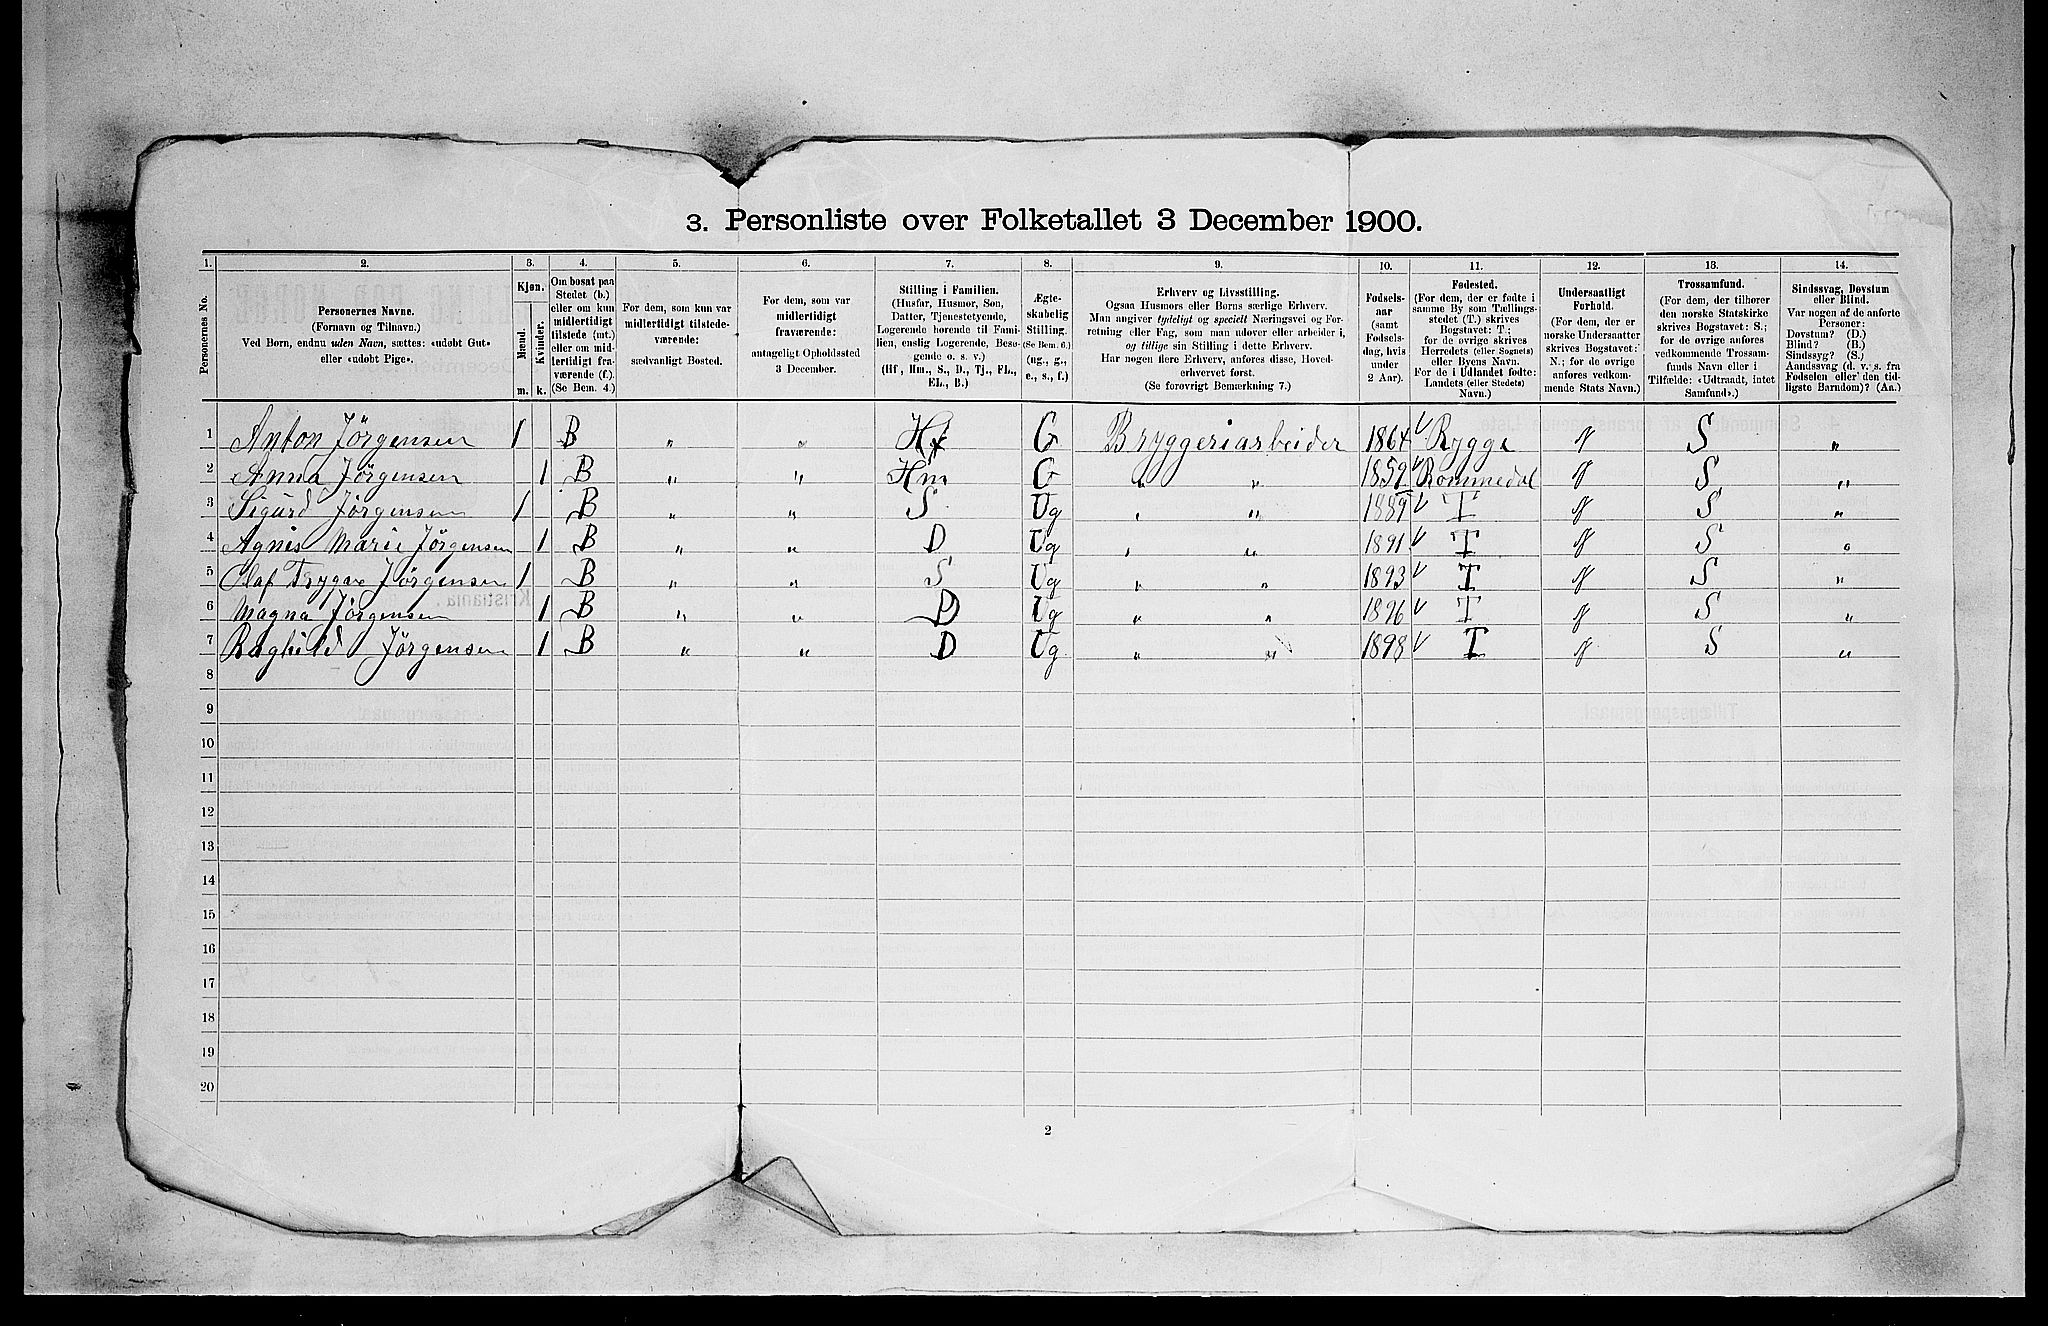 3. Personliste over Folketallet 3 December 1900.
1. 2. 3. 4. 5. 6. 7. 8. 9. 10. 11. 12. 13. 14.
Personernes No.
Personernes Navne.
(Fornavn og Tilnavn.)
Ved Børn, endnu uden Navn, sættes: «udøbt Gut»
eller «udøbt Pige».
Kjøn.
Mænd.
Kvinder.
m. k.
Om bosat paa
Stedet (b.)
eller om kun
midlertidigt
tilstede (mt.)
eller om mid-
lertidigt fra-
værende (f.).
(Se Bem. 4.)
For dem, som kun var
midlertidigt tilstede-
værende:
sædvanligt Bosted.
For dem, som var
midlertidigt
fraværende:
antageligt Opholdssted
3 December.
Stilling i Familien.
(Husfar, Husmor, Søn,
Datter, Tjenestetyende,
Logerende hørende til Fami-
lien, enslig Logerende, Besø-
gende o. s. v.)
(Hf., Hm., S., D., Tj., FL.,
EL., B.)
Ægte-
skabelig
Stilling.
(Se Bem. 6.)
(ug., g.,
e., s., f.)
Erhverv og Livsstilling.
Ogsaa Husmors eller Børns særlige Erhverv.
Man angiver tydeligt og specielt Næringsvei og For-
retning eller Fag, som man udøver eller arbeider i,
og tillige sin Stilling i dette Erhverv.
Har nogen flere Erhverv, anføres disse, Hoved-
erhvervet først.
(Se forøvrigt Bemærkning 7.)
Fødsels-
aar
(samt
Fødsels-
dag, hvis
under
2 Aar).
Fødested.
(For dem, der er fødte i
samme By som Tællings-
stedet (T.) skrives
Bogstavet: T.;
for de øvrige skrives
Herredets (eller Sognets)
eller Byens Navn.
For de i Udlandet fødte:
Landets (eller Stedets)
Navn.)
Undersaatligt
Forhold.
(For dem, der er
norske Undersaatter
skrives Bogstavet:
N.; for de øvrige
anføres vedkom-
mende Stats Navn.)
Trossamfund.
(For dem, der tilhører
den norske Statskirke
skrives Bogstavet: S.;
for de øvrige anføres
vedkommende Trossam-
funds Navn eller i
Tilfælde: «Udtraadt, intet
Samfund».)
Sindssvag, Døvstum
eller Blind.
Var nogen af de anførte
Personer:
Døvstum? (D.)
Blind? (B.)
Sindssyg? (S.)
Aandssvag (d. v. s. fra
Fødselen eller den tid-
ligste Barndom)? (Aa.)
1 Anton Jörgensen 1 B „ „ Hf G Bryggeriarbeider 1864 Rygge N S „
2 Anna Jörgensen 1 B „ „ Hm G „ „ 1859 Rommedal N S „
3 Sigurd Jörgensen 1 B „ „ S Ug „ „ 1889 T N S „
4 Agnis Marie Jörgensen 1 B „ „ D Ug „ „ 1891 T N S „
5 Olaf Trygve Jörgensen 1 B „ „ S Ug „ „ 1893 T N S „
6 Magna Jörgensen 1 B „ „ D Ug „ „ 1896 T N S „
7 Raghild Jörgensen 1 B „ „ D Ug „ „ 1898 T N S „
8
9
10
11
12
13
14
15
16
17
18
19
20
2